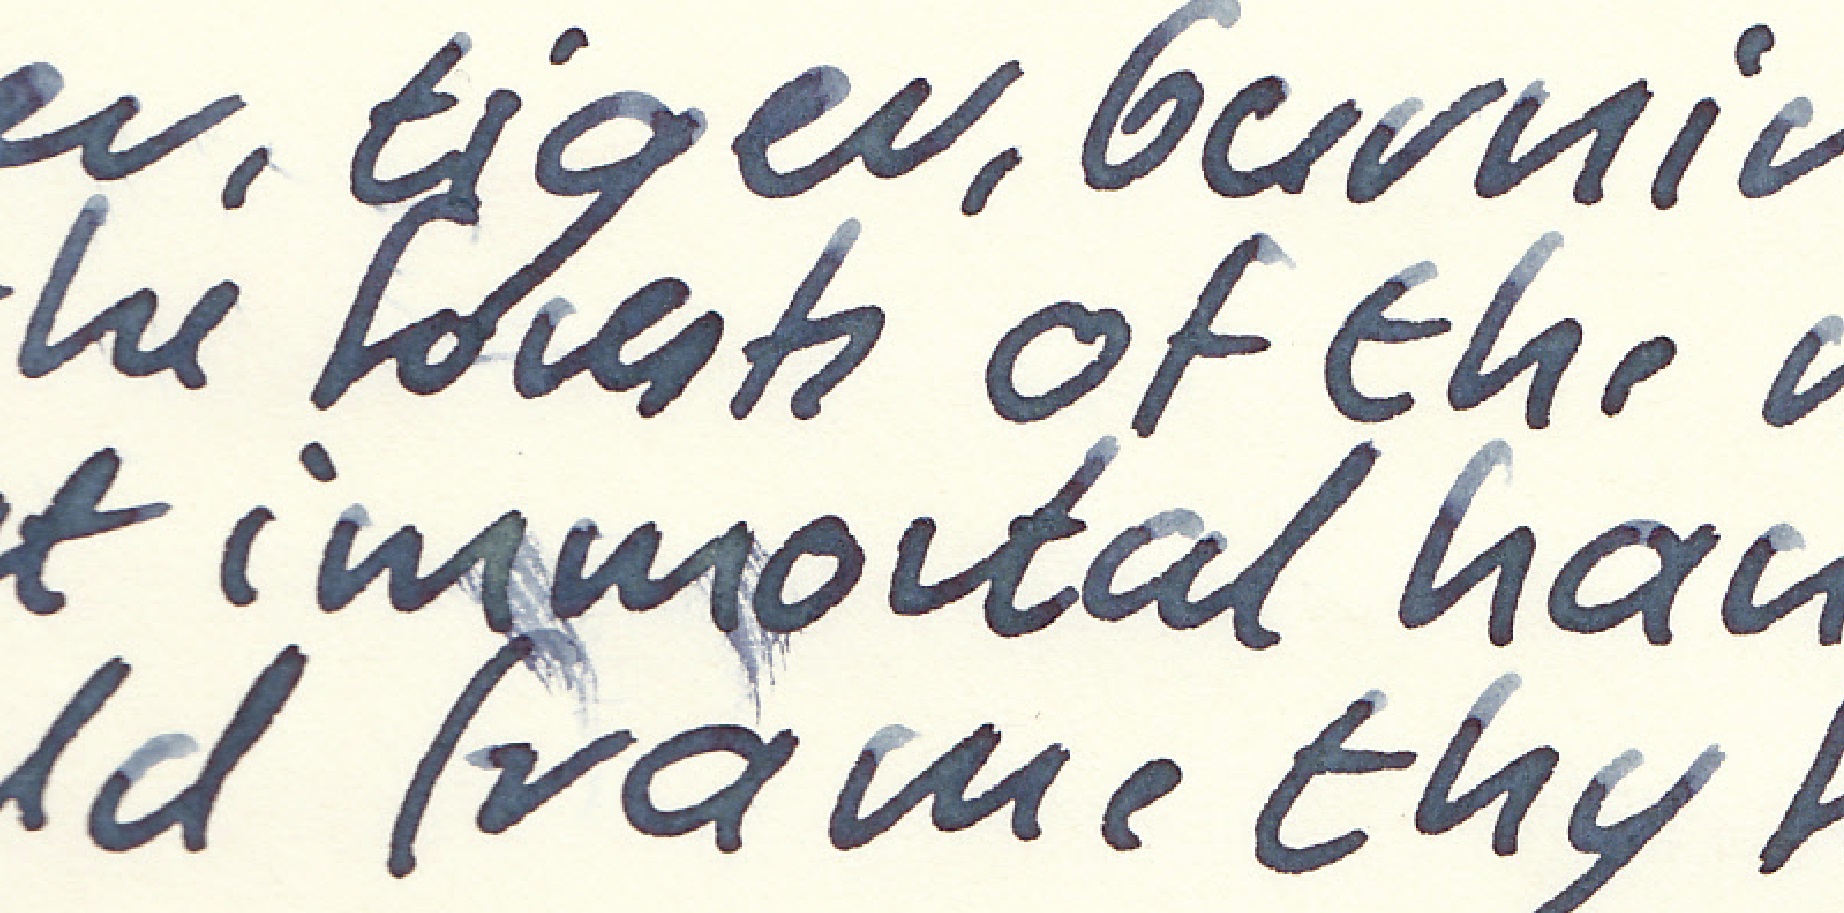 er, tiger, burnin
the forests of the n
t immortal han
ld frame thy f